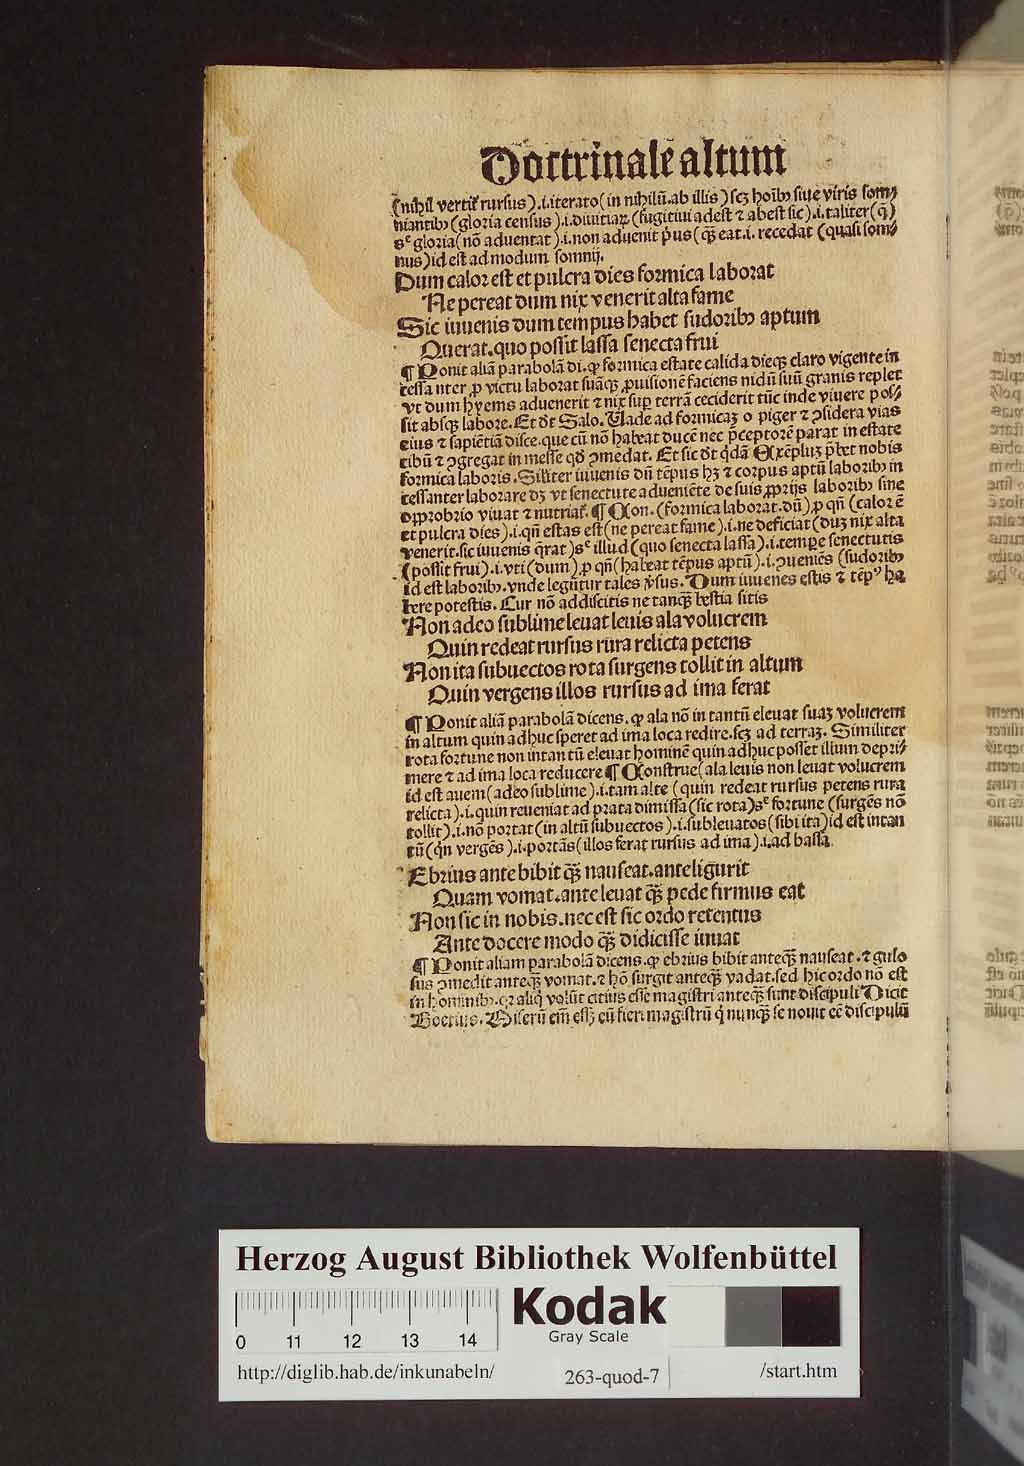 Doctrinale altum
(nihil vertit᷑ rursus).i.iterato(in nihilū.ab illis)scꝫ hoı̄bꝫ siue viris som⸗
niantibꝫ(gloria census).i.diuitiaꝝ (fugitiui adest ⁊ abest sic).i.taliter(q̄)
sᶜ gloria(nō aduentat).i.non aduenit p̄us(qꝫ̄ eat.i. recedat (quasi som⸗
nus)id est ad modum somnij.
Dum calor est et pulcra dies formica laborat
Ne pereat dum nix venerit alta fame
Sic iuuenis dum tempus habet sudoribꝫ aptum
Querat.quo possit lassa senecta frui
¶ Ponit aliā parabolā di.ꝙ formica estate calida dieqꝫ claro vigente in
cessanter ꝓ victu laborat suāqꝫ ꝓuisionē faciens nidū suū granis replet
vt dum hyems aduenerit ⁊ nix suꝑ terrā ceciderit tūc inde viuere pos⸗
sit absqꝫ labore. Et dt̄ Salo. Uade ad formicaꝫ o piger ⁊ ꝯsidera vias
eius ⁊ sapiētiā disce.que cū nō habeat ducē nec p̄ceptorē parat in estate
cibū ⁊ ꝯgregat in messe qd̄ ꝯmedat. Et sic dt̄ qdā Exēpluꝫ p̄bet nobis
formica laboris. Silȋter iuuenis dū tēpus hꝫ ⁊ corpus aptū laboribꝫ in
cessanter laborare dꝫ vt senectute adueniēte de suis ꝓprijs laboribꝫ sine
opprobrio viuat ⁊ nutriat᷑. ¶ Con. (formica laborat.dū) ꝓ qn̄ (calor ē
et pulcra dies).i.qn̄ estas est(ne pereat fame).i.ne deficiat (duꝫ nix alta
venerit.sic iuuenis q̄rat)sᶜ illud (quo senecta lassa).i.tempe senectutis
(possit frui).i.vti (dum) ꝓ qn̄ (habeat tēpus aptū).i.ꝯueniēs (sudoribꝫ
id est laboribꝫ.vnde legūtur tales v̓sus. Dum iuuenes estis ⁊ tēpꝰ ha
bere potestis. Cur nō addiscitis ne tanqꝫ̄ bestia sitis
Non adeo sublime leuat leuis ala volucrem
Quin redeat rursus rura relicta petens
Non ita subuectos rota surgens tollit in altum
Quin vergens illos rursus ad ima ferat
¶ Ponit aliā parabolā dicens.ꝙ ala nō in tantū eleuat suaꝫ volucrem
in altum quin adhuc speret ad ima loca redire.scꝫ ad terraꝫ. Similiter
rota fortune non intantū eleuat hominē quin adhuc posset illum depri⸗
mere ⁊ ad ima loca reducere ¶ Construe(ala leuis non leuat volucrem
id est auem(adeo sublime).i.tam alte (quin redeat rursus petens rura
relicta).i.quin reueniat ad prata dimissa (sic rota)sᶜ fortune (surgēs nō
tollit).i.nō portat(in altū subuectos).i.subleuatos(sibi ita)id est intan
tū(qn vergēs).i.portās(illos ferat rursus ad ima).i.ad bassa
Ebrius ante bibit qꝫ̄ nauseat.anteligurit
Quam vomat.ante leuat qꝫ̄ pede firmus eat
Non sic in nobis.nec est sic ordo retentus
Ante docere modo qꝫ̄ didicisse iuuat
¶ Ponit aliam parabolā dicens.ꝙ ebrius bibit anteqꝫ̄ nauseat.⁊ gulo
sus ꝯmedit anteqꝫ̄ vomat.⁊ hō surgit anteqꝫ̄ vadat.sed hic ordo nō est
in hominibꝫ.qꝛ aliq̇ volūt citius esse magistri anteqꝫ̄ sunt discipuli Dicit
Boetius. Miserū em̄ essꝫ eū fieri magistrū q̇ nunqꝫ̄ se nouit eē discipulū
Herzog August Bibliothek Wolfenbüttel
0 11 12 13 14
Kodak
Gray Scale
http://diglib.hab.de/inkunabeln/ 263-quod-7 /start.htm